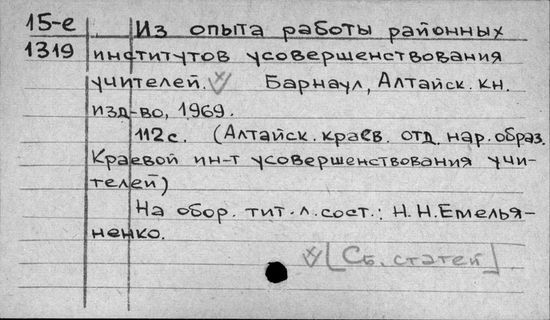 15-е Из опыта работы районных
1319 институтов усовершенствования
учителей. Барнаул, Алтайск. кн.
изд-во, 1969.
112с. (Алтайск. краев. отд. нар. образ.
Краевой ин-т усовершенствования учи-
телей)
На обор. тит. л. сост.: Н.Н.Емелья-
ненко.
[Сб. статей]